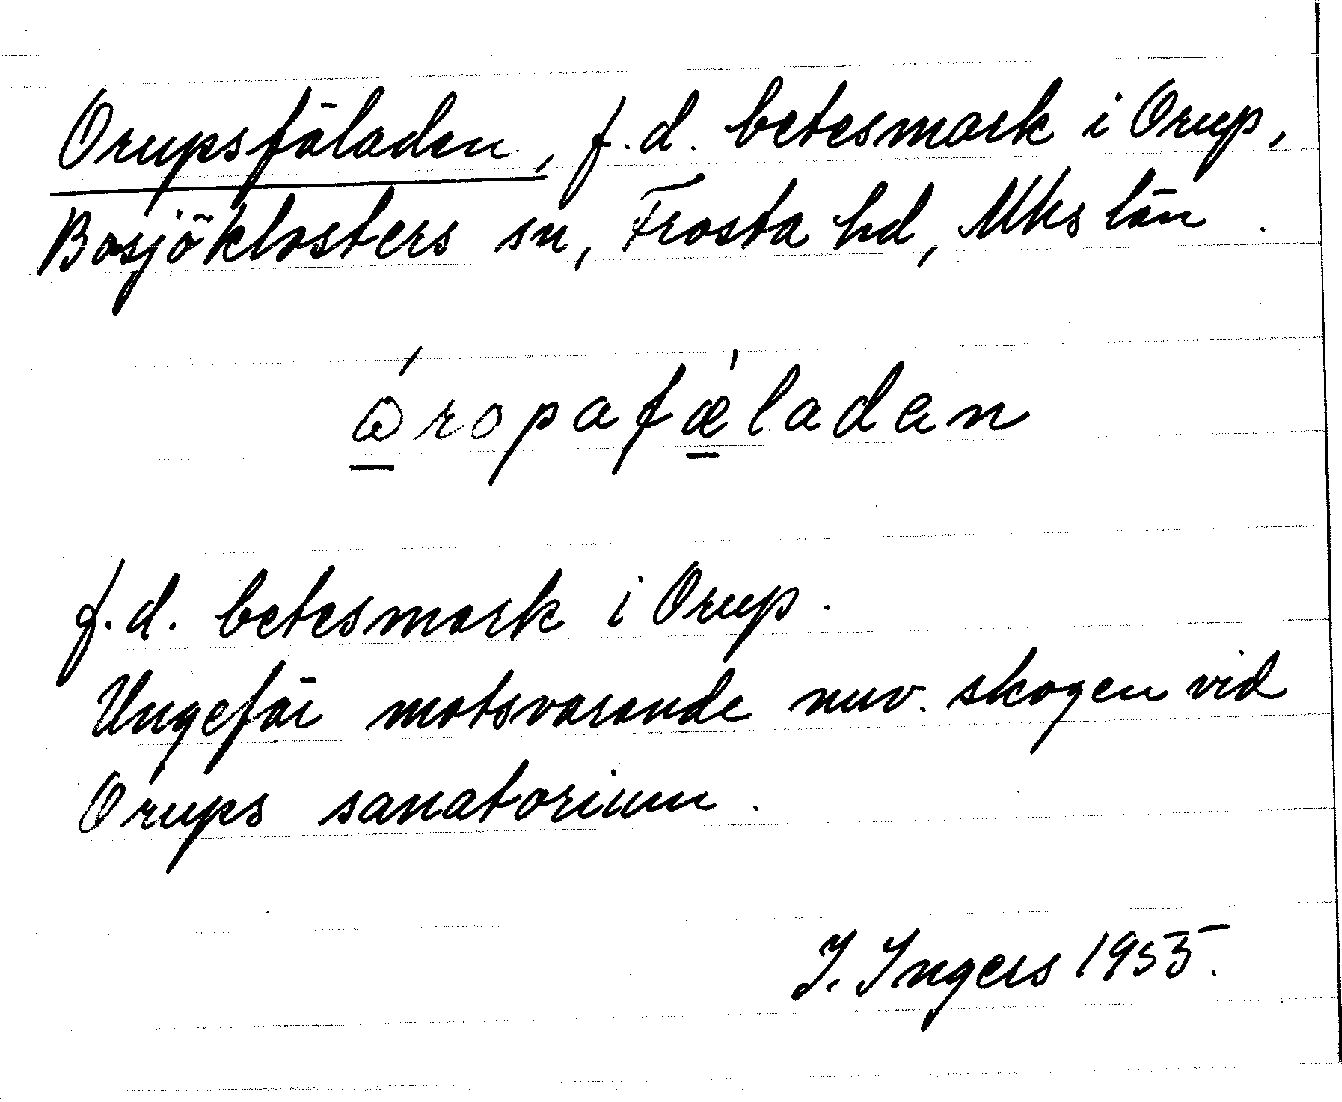 Orupsfäladen, f.d. betesmark i Orup,
Bosjöklosters sn, Frosta hd, Mhs län.
f.d. betesmark i Orup.
Ungefär motsvarande nuv. skogen vid
Orups sanatorium.
I. Ingers 1955.